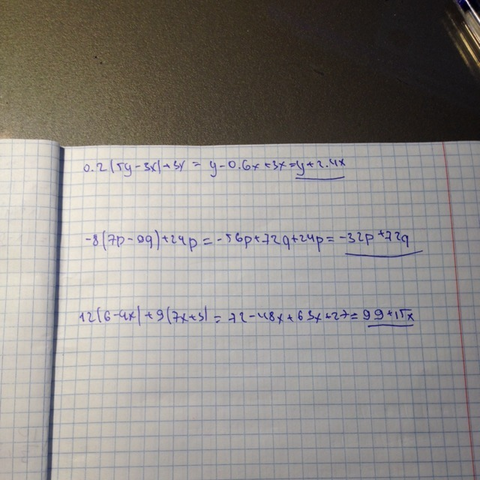 0.2(5y-3x)+3x = y-0.6x+3x=y+2.4x
-8(7p-9q)+24p=-56p+72q+24p=-32p+72q
12(6-4x)+9(7x+3)=72-48x+63x+27=99+15x